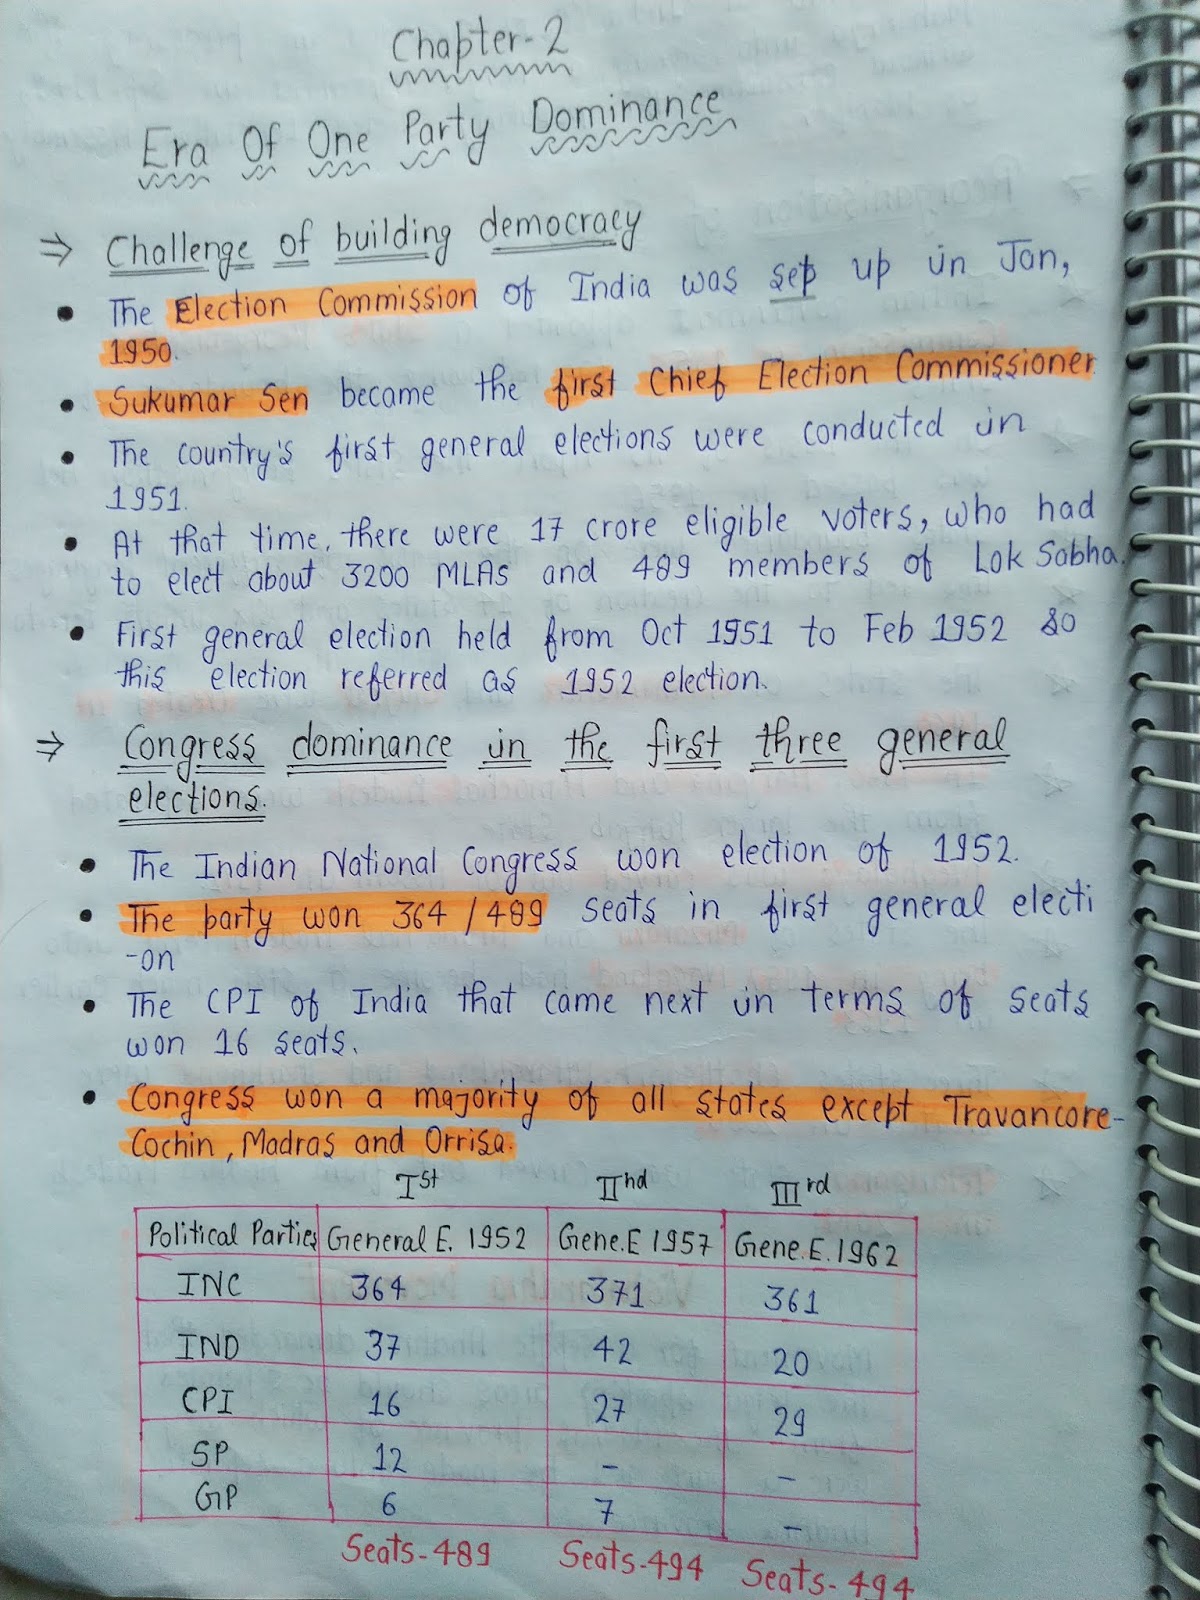 Chapter-2
Era Of One Party Dominance
⇒ Challenge of building democracy
• The Election Commission of India was set up in Jan,
1950.
• Sukumar Sen became the first Chief Election Commissioner.
• The country's first general elections were conducted in
1951.
• At that time, there were 17 crore eligible voters, who had
to elect about 3200 MLAs and 489 members of Lok Sabha.
• First general election held from Oct 1951 to Feb 1952 so
this election referred as 1952 election.
⇒ Congress dominance in the first three general
elections.
• The Indian National Congress won election of 1952.
• The party won 364 / 489 seats in first general electi
-on
• The CPI of India that came next in terms of seats
won 16 seats.
• Congress won a majority of all states except Travancore-
Cochin, Madras and Orrisa.
Ist IInd IIIrd
Political Parties General E. 1952 Gene.E 1957 Gene.E.1962
INC 364 371 361
IND 37 42 20
CPI 16 27 29
SP 12 - -
GP 6 7 -
Seats-489 Seats-494 Seats-494